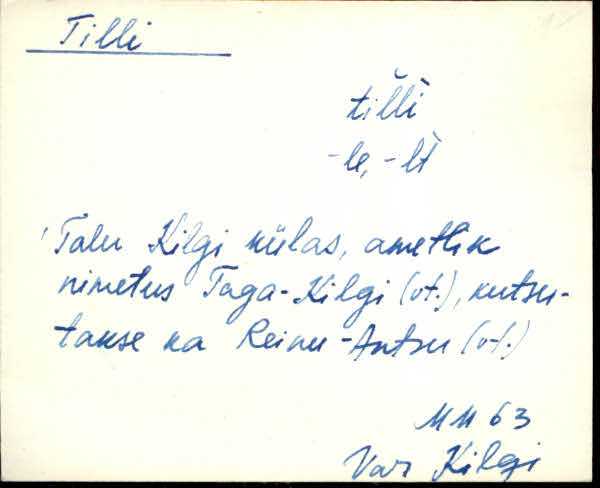 Tilli
tillì
-le, -lt
Talu Kilgi külas, ametlik
nimetus Taga-Kilgi (vt.), kutsu-
takse ka Reinu-Antsu (vt.)
MM 63
Var Kilgi